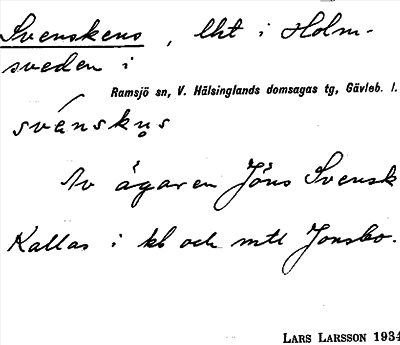 Svenskens, lht i Holm-
sveden i
Ramsjö sn, V. Hälsinglands domsagas tg, Gävleb. l.
svénskụs
Av ägaren Jöns Svensk
Kallas i kb och mtl Jonsbo.
LARS LARSSON 1934